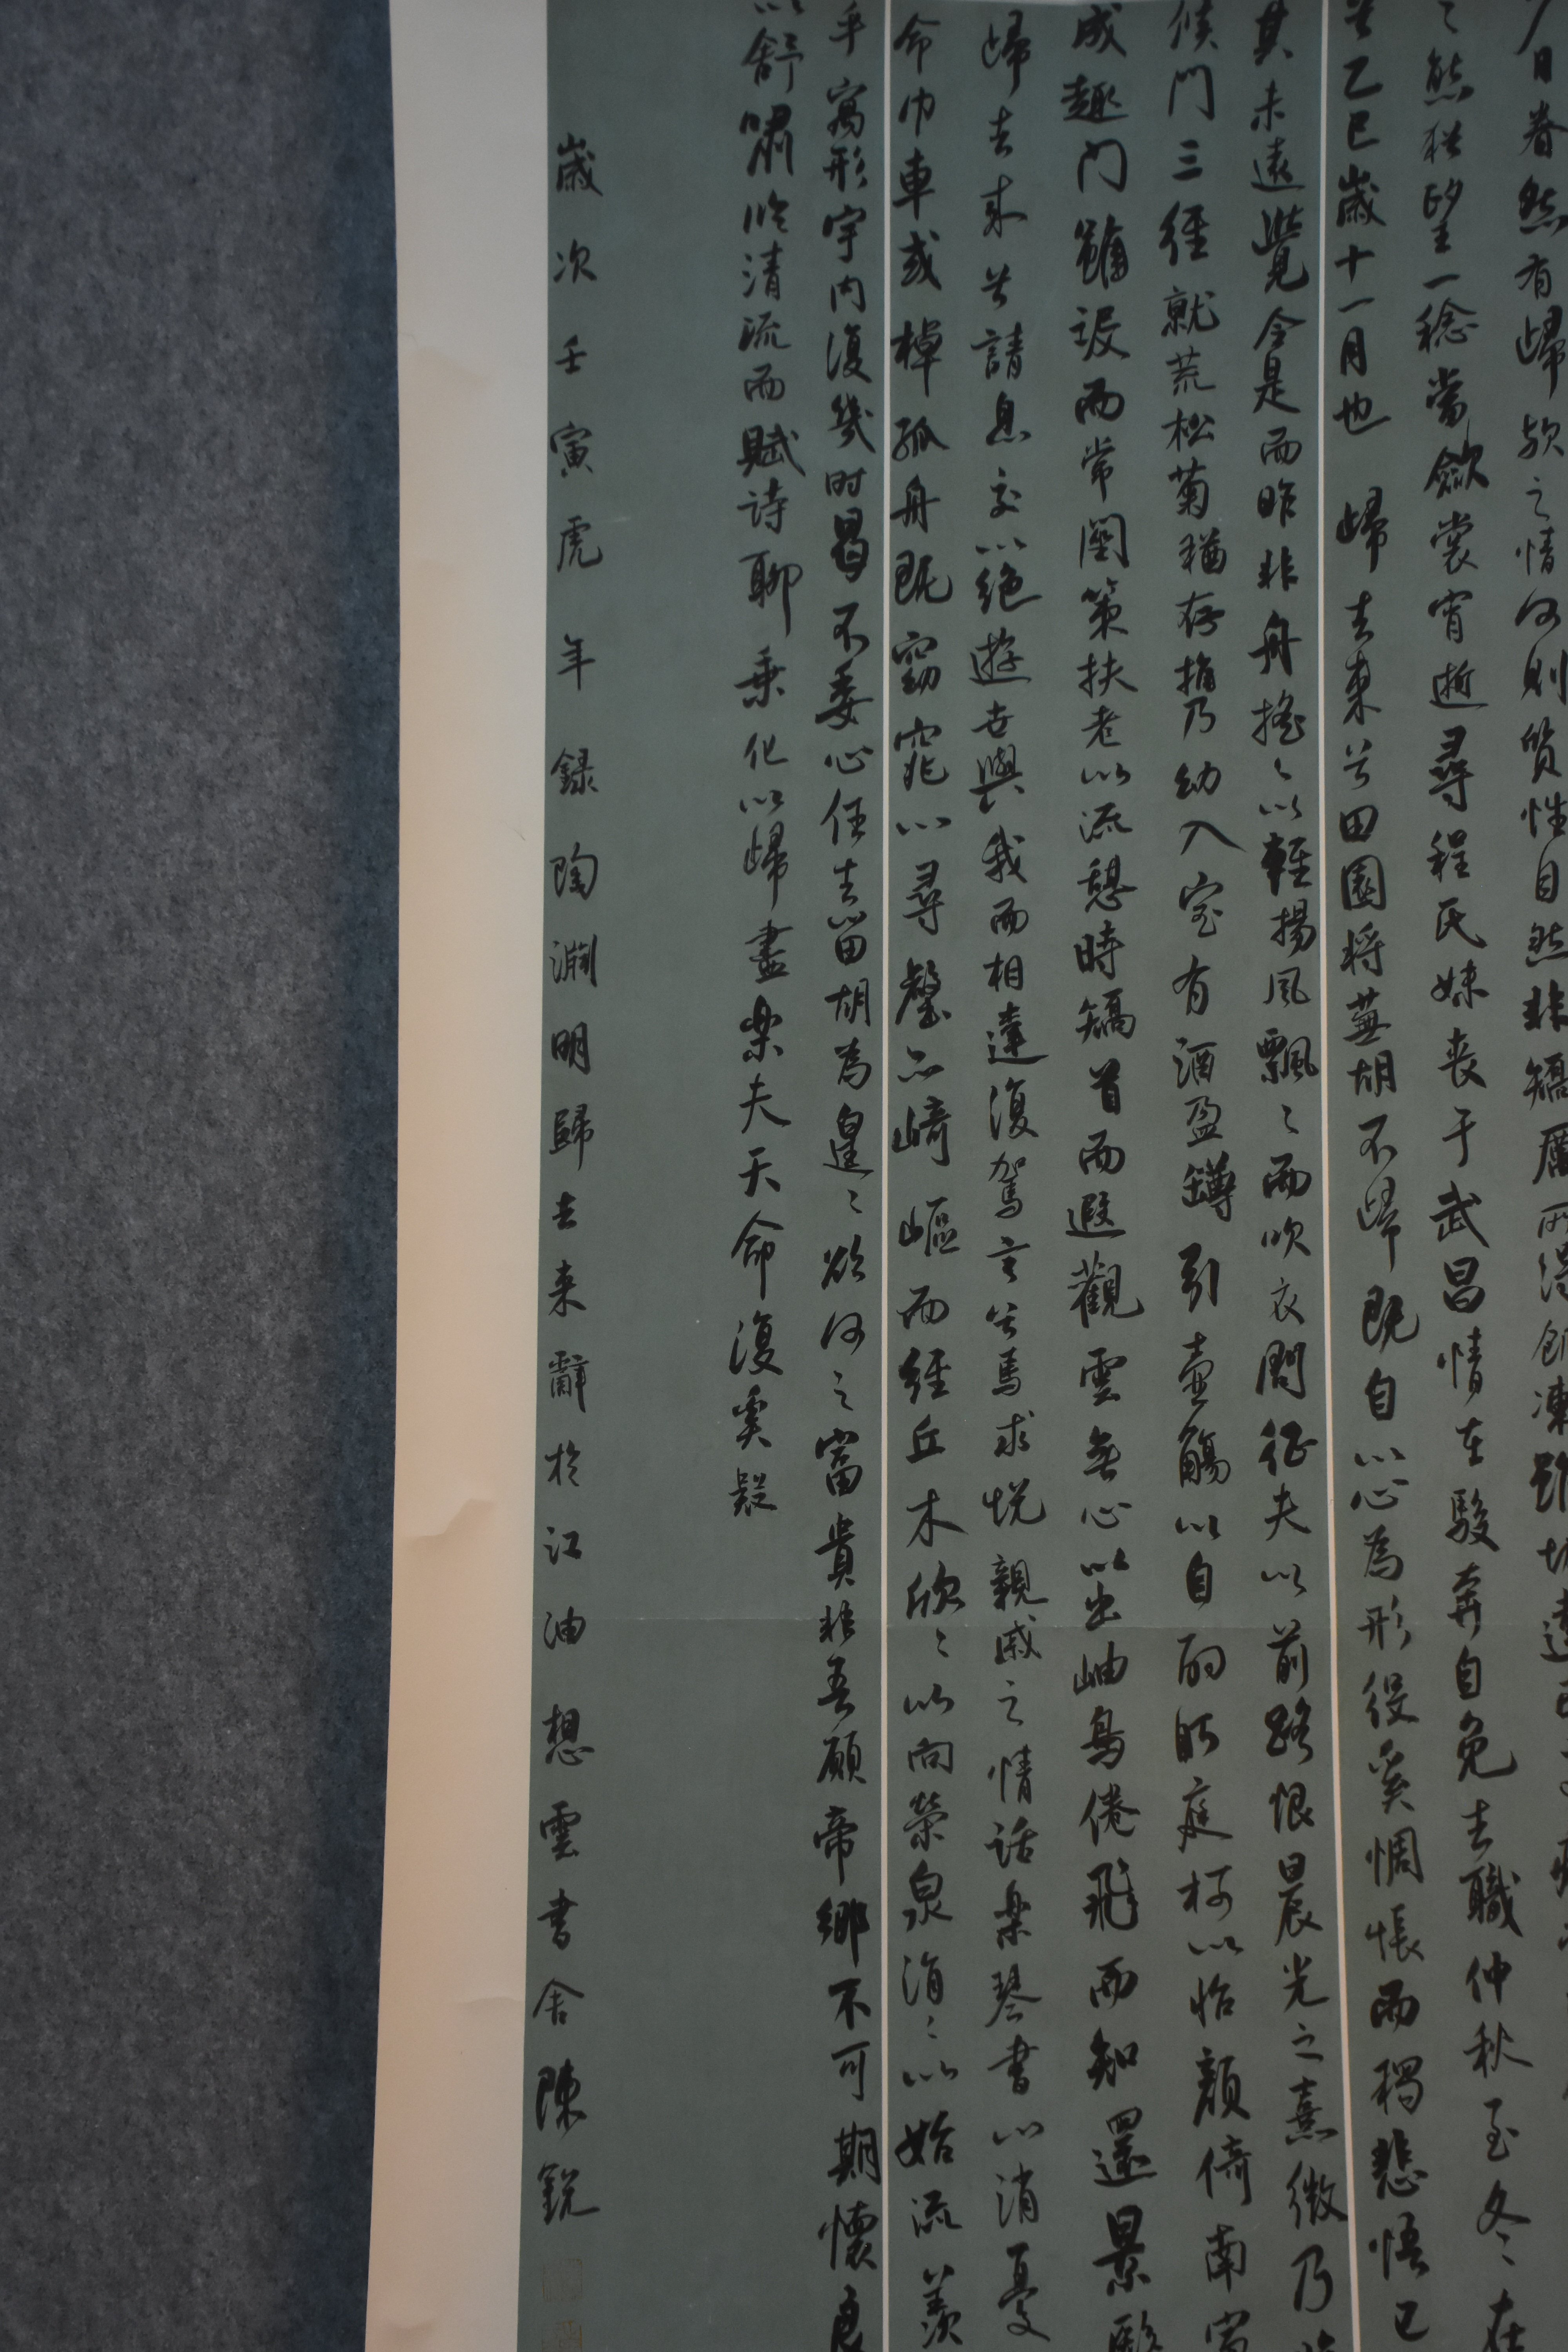 日眷然有歸歟之情何則質性自然非矯厲所得飢凍雖切違己
〻然猶望一稔當斂裳宵逝尋程氏妹喪于武昌情在駿奔自免去職仲秋至冬〻在
兮乙巳歲十一月也 歸去來兮田園將蕪胡不歸既自以心為形役奚惆悵而獨悲悟已
其未遠覺今是而昨非舟搖〻以輕揚風飄〻而吹衣問征夫以前路恨晨光之熹微乃
候門三徑就荒松菊猶存攜乃幼入室有酒盈罇引壺觴以自酌眄庭柯以怡顏倚南窗
成趣門雖設而常關策扶老以流憩時矯首而遐觀雲無心以出岫鳥倦飛而知還景翳
歸去來兮請息交以絕遊世與我而相違復駕言兮焉求悅親戚之情話樂琴書以消憂
命巾車或棹孤舟既窈窕以尋壑亦崎嶇而經丘木欣〻以向榮泉涓〻以始流羨
乎寓形宇内復幾时曷不委心任去留胡為皇〻欲何之富貴非吾願帝鄉不可期懷良
以舒嘯臨清流而賦詩聊乘化以歸盡樂夫天命復奚疑
歲次壬寅虎年錄陶淵明歸去来辭於江油想雲書舍陳銳